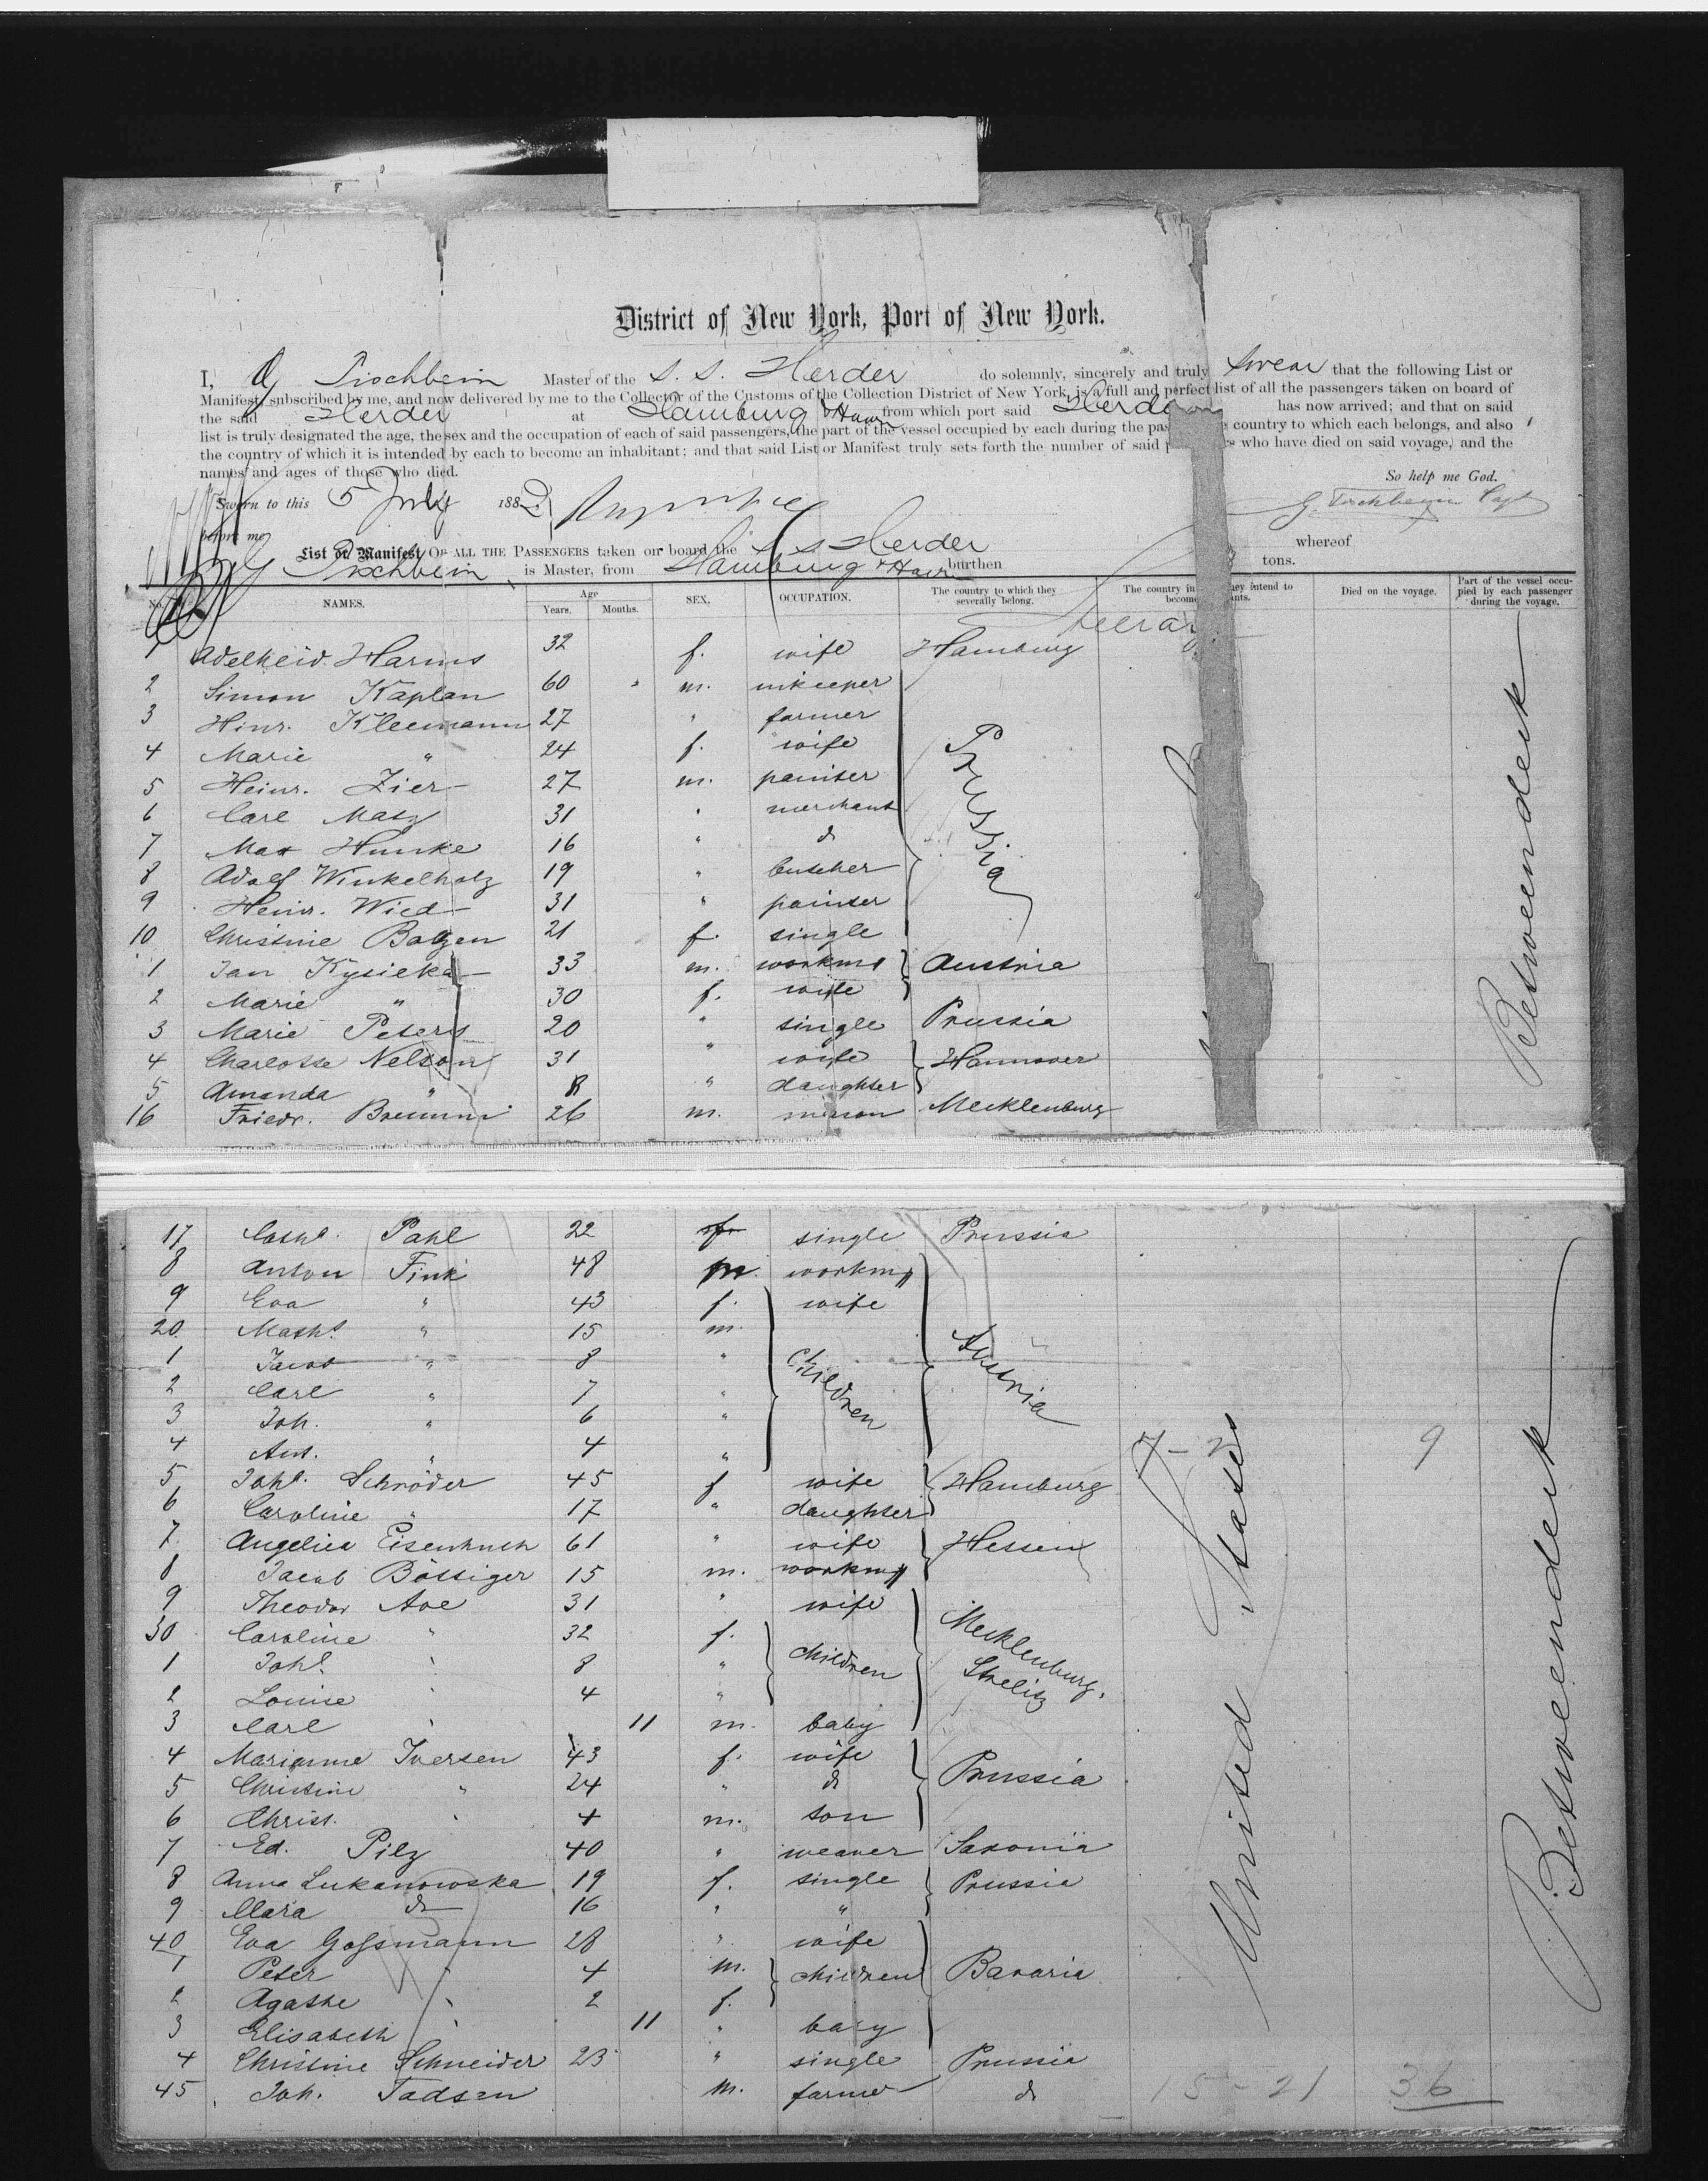 District of New York, Port of New York.
I, G Tischbein Master of the S. S. Herder do solemnly, sincerely and truly swear that the following List or
Manifest, subscribed by me, and now delivered by me to the Collector of the Customs of the Collection District of New York, is a full and perfect list of all the passengers taken on board of
the said Herder at Hamburg & Havre from which port said Herder has now arrived; and that on said
list is truly designated the age, the sex and the occupation of each of said passengers, the part of the vessel occupied by each during the pas country to which each belongs, and also
the country of which it is intended by each to become an inhabitant; and that said List or Manifest truly sets forth the number of said p s who have died on said voyage, and the
names and ages of those who died.
So help me God.
Sworn to this 5 July 1882
G. Tischbein Capt
before me
List or Manifest OF ALL THE PASSENGERS taken on board the S S Herder whereof
G Tischbein is Master, from Hamburg & Havre burthen tons.
No. NAMES. Age Years. Months. SEX. OCCUPATION. The country to which they severally belong. The country in they intend to become nts. Died on the voyage. Part of the vessel occupied by each passenger during the voyage.
1 Adelheid Harms 32 f. wife Hamburg
2 Simon Kaplan 60 m. inkeeper
3 Hinr. Kleemann 27 " farmer
4 Marie " 24 f. wife
5 Heinr. Zier 27 m. painter
6 Carl Matz 31 " merchant
7 Max Hunke 16 " do
8 Adolf Winkelholz 19 " butcher
9 Heinr. Wied 31 " painter
Prussia
10 Christine Bagen 21 f. single
1 Jan Kysielka 33 m. workmg Austria
2 Marie " 30 f. wife
3 Marie Peters 20 " single Prussia
4 Charlotte Nelson 31 " wife Hannover
5 Amanda " 8 " daughter
16 Friedr. Brumm 26 m. mason Mecklenburg
Betweendeck
17 Cathe. Pahl 22 f. single Prussia
8 Anton Fink 48 m. workmg
9 Eva " 43 f. wife
20 Mathe " 15 m.
1 Jacob " 8 "
2 Carl " 7 "
3 Joh. " 6 "
4 Ant. " 4 "
children
Austria
7 - 2 9
5 Johe. Schröder 45 f wife Hamburg
6 Caroline " 17 " daughter
7 Angelica Eisenhuth 61 " wife Hessen
8 Jacob Böttiger 15 m. workmg
9 Theodor Ave 31 " wife
30 Caroline " 32 f.
1 Johe. " 8 " children
2 Louise " 4 "
Mecklenburg Strelitz
3 Carl " 11 m. baby
4 Marianne Iversen 43 f. wife
5 Christine " 24 " do Prussia
6 Christ. " 4 m. son
7 Ed. Pilz 40 " weaver Saxonia
8 Anna Lukanowska 19 f. single Prussia
9 Clara do 16 " "
40 Eva Gossmann 28 " wife
1 Peter " 4 m. children Bavaria
2 Agathe " 2 f.
3 Elisabeth " 11 " baby
4 Christine Schneider 23 " single Prussia
45 Joh. Tadsen m. farmer do
15 - 21 36
United States
Betweendeck